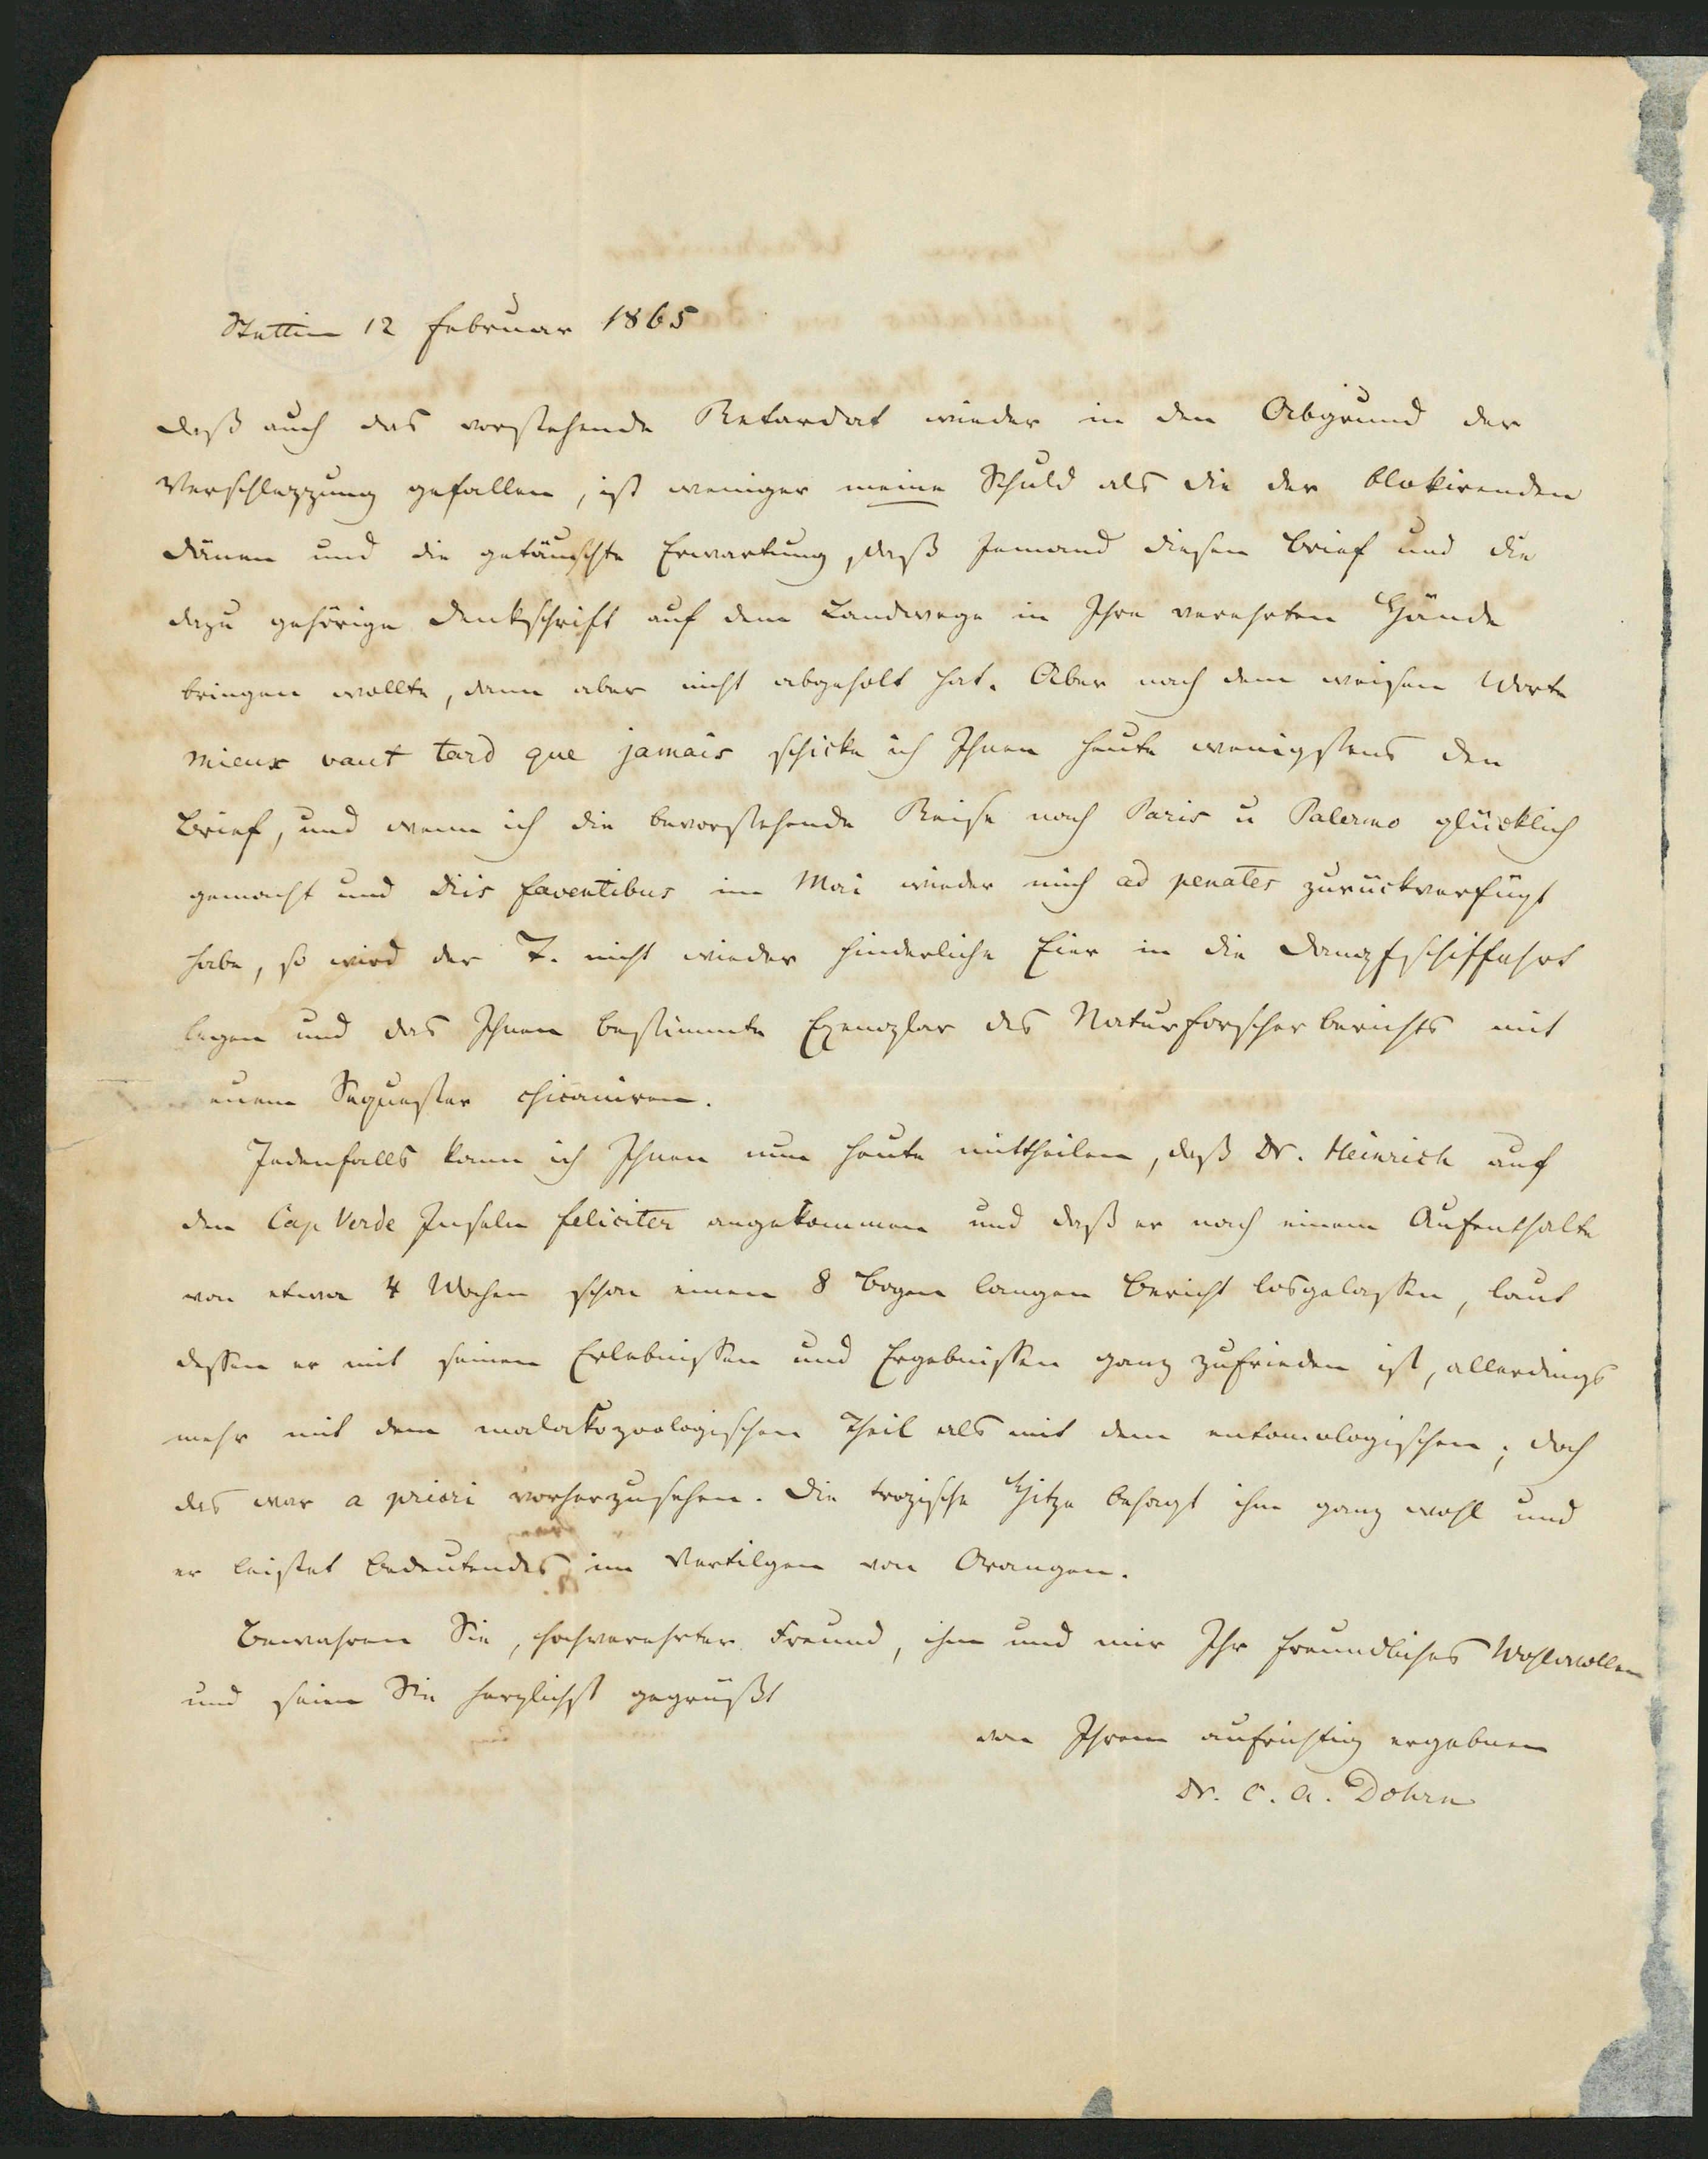 Stettin 12 Februar 1865
daß auch das vorstehende Retardat wieder in den Abgrund der
Verschleppung gefallen, ist weniger meine Schuld als die der blokirenden
Dänen und die getäuschte Erwartung, daß Jemand diesen Brief und die
dazu gehörige Denkschrift auf dem Landwege in Ihre verehrten Hände
bringen wollte, dann aber nicht abgeholt hat. Aber nach dem weisen Worte
mieux vaut tard que jamais schicke ich Ihnen heute wenigstens den
Brief, und wenn ich die bevorstehende Reise nach Paris u Palermo glücklich
gemacht und diis faventibus im Mai wieder mich ad penates zurückverfügt
habe, so wird der T. nicht wieder hinderliche Eier in die Dampfschiffahrt
legen und das Ihnen bestimmte Exemplar des Naturforscherberichts mit
neuem Sequester chicaniren.
Jedenfalls kann ich Ihnen nun heute mittheilen, daß Dr. Heinrich auf
den Cap Verde Inseln feliciter angekommen und daß er nach einem Aufenthalte
von etwa 4 Wochen schon einen 8 Bogen langen Bericht losgelassen, laut
dessen er mit seinen Erlebnissen und Ergebnissen ganz zufrieden ist, allerdings
mehr mit dem malakozoologischen Theil als mit dem entomologischen; doch
das war a priori vorherzusehen. Die tropische Hitze behagt ihm ganz wohl und
er leistet Bedeutendes im Vertilgen von Orangen.
Bewahren Sie, hochverehrter Freund, ihm und mir Ihr freundliches Wohlwollen
und seien Sie herzlichst gegrüßt
von Ihrem aufrichtig ergebnen
Dr. C. A. Dohrn